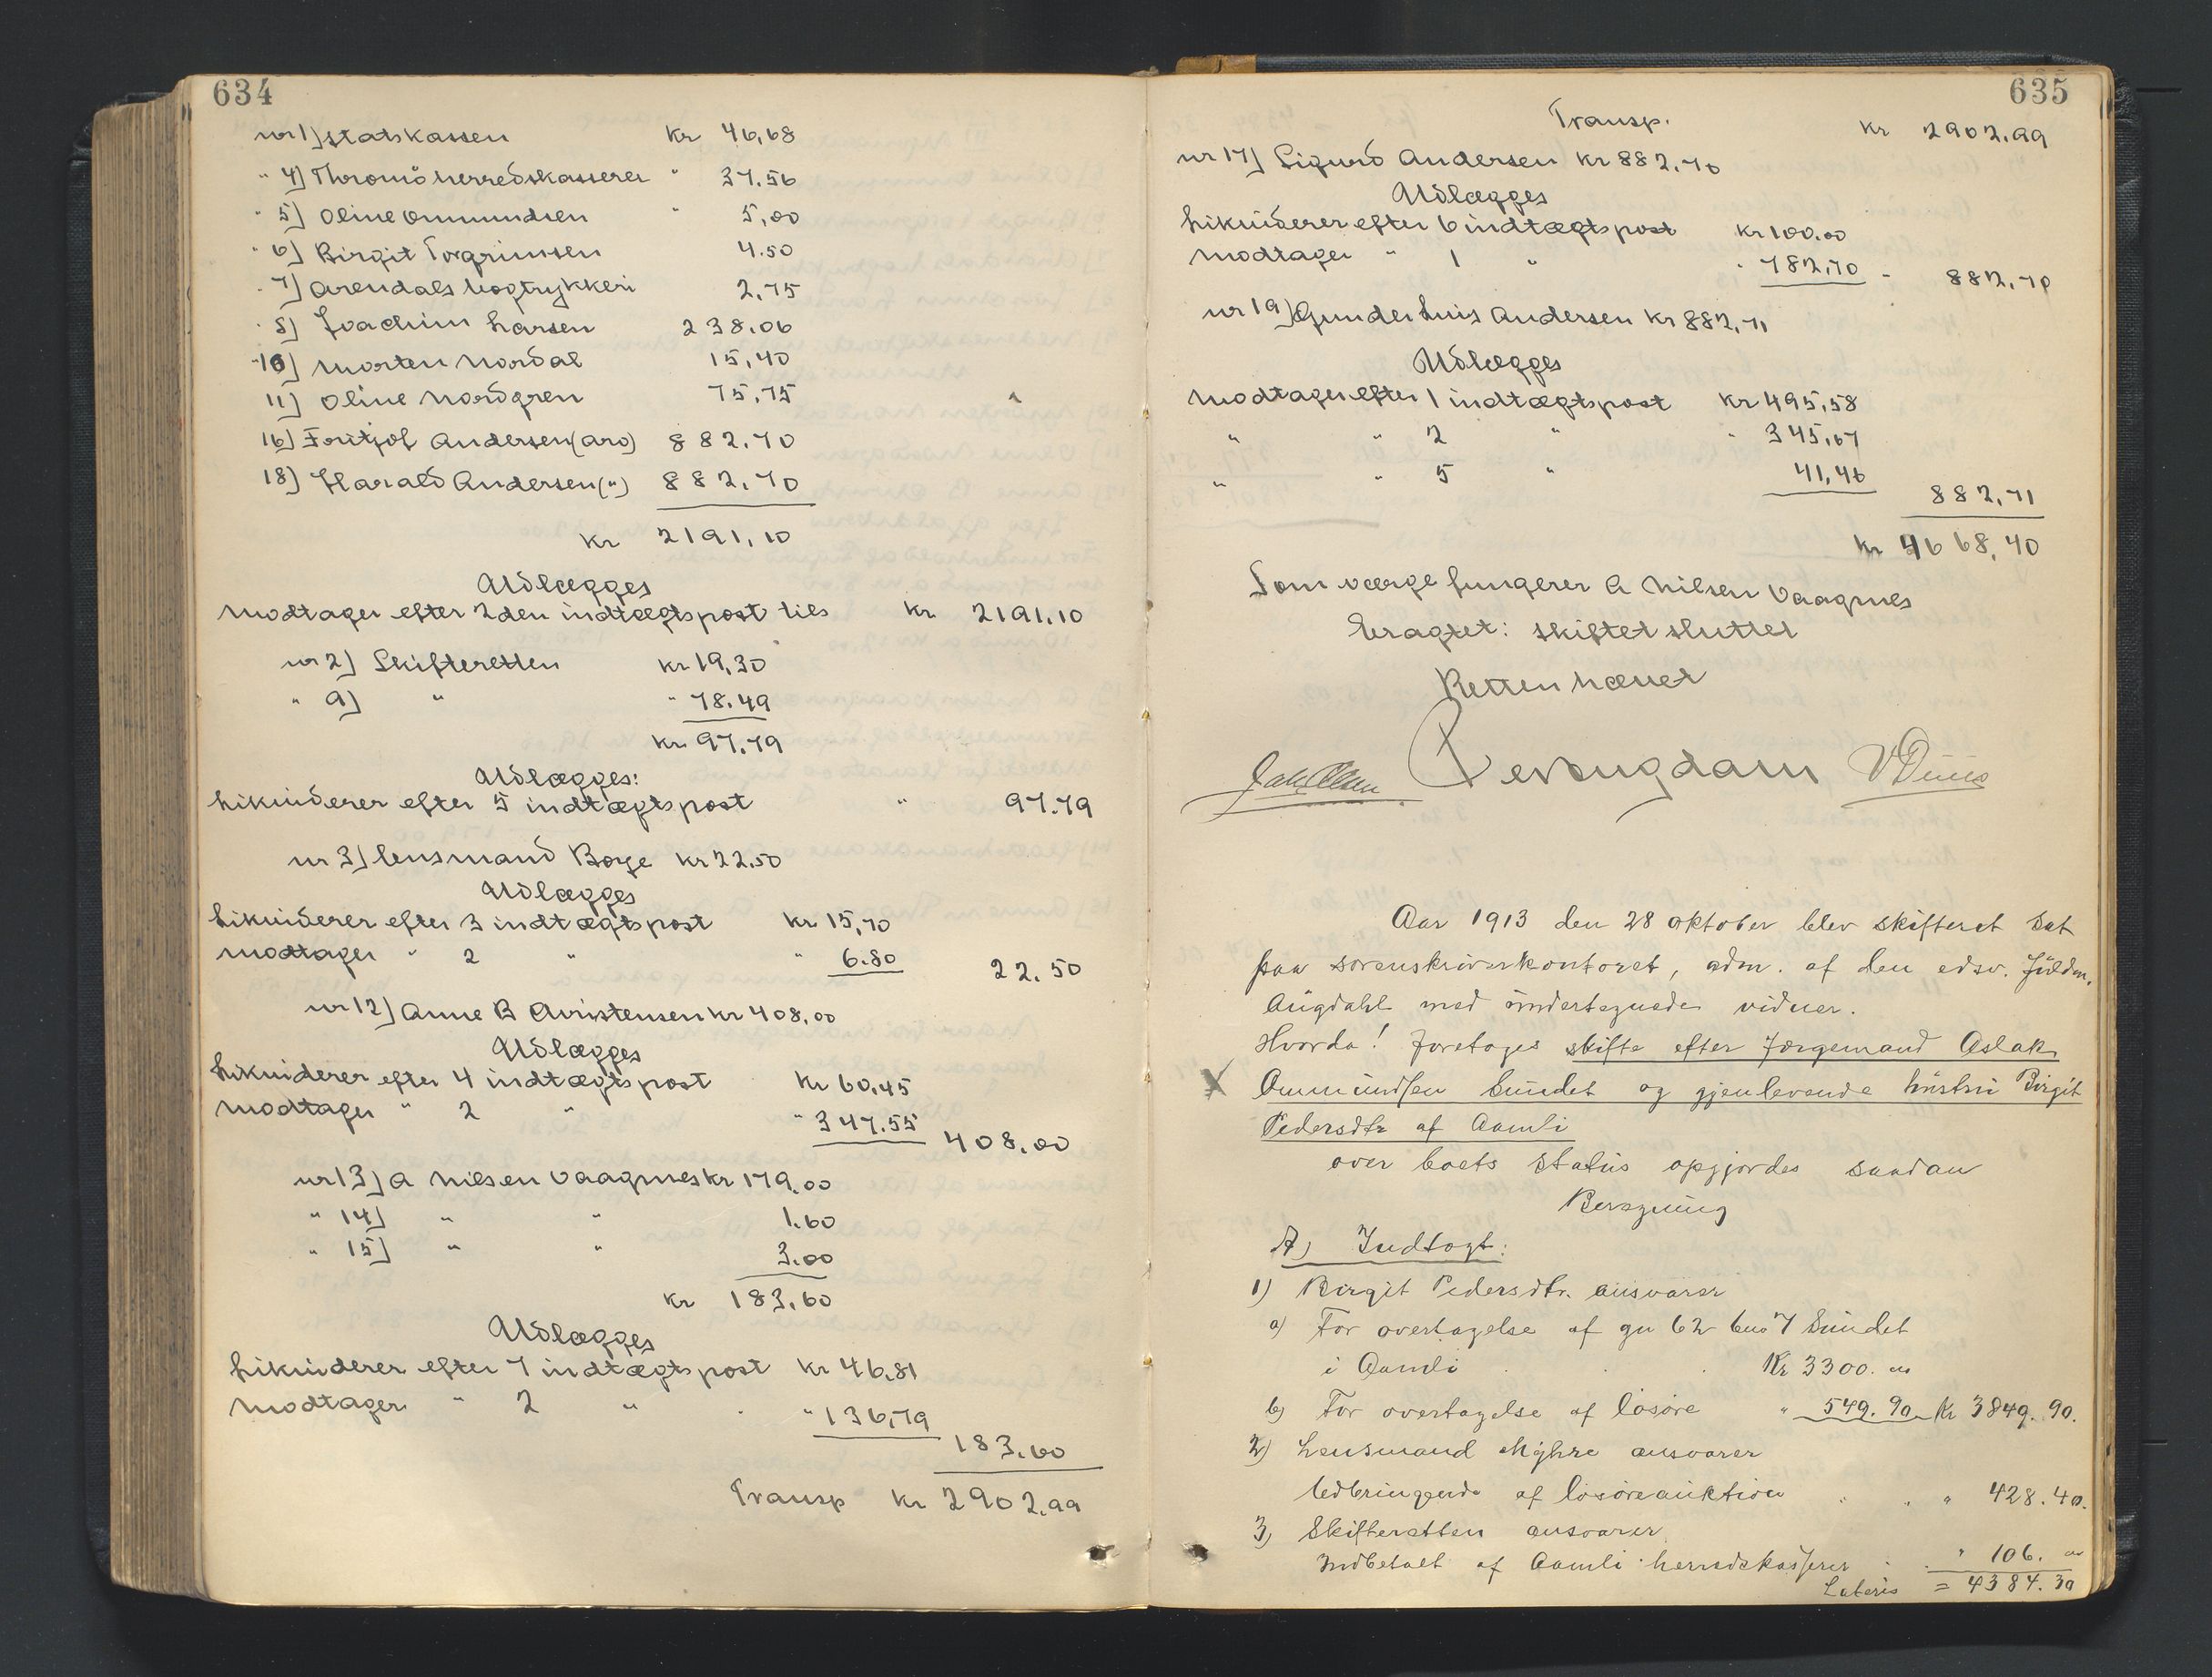 634
nr 1) Statskassen kr 46,68
" 4) Thromö herredskasserer " 37.56
" 5) Oline Ommundsen " 5,00
" 6) Birgit Torgrimsen 4.50
" 7) Arendals bogtrykkeri 2,75
" 8) Joachim Larsen 238.06
" 10) Morten Nordal 15,40
11) Oline Nordgren 75,75
16) Fritjof Andersen (arv) 882.70
18) Harald Andersen (") 882,70
kr 2191,10
Udlægges
Modtager efter 2den indtægtspost ties kr 2191.10
nr 2) Skifteretten kr 19,30
" 9) " " 78.49
kr 97.79
Udlægges:
Likviderer efter 5 indtægtspost " 97.79
nr 3) Lensmand Boye kr 22.50
Udlægges
Likviderer efter 3 indtægtspost kr 15,70
Modtager " 2 " " 6.80 22.50
nr 12) Anne B Christensen kr 408,00
Udlægges
Likviderer efter 4 indtægtspost kr 60,45
Modtager " 2 " " 347.55 408.00
nr 13) A Nilsen Vaagnes kr 179.00
" 14) " " 1.60
" 15) " " 3.00
kr 183,60
Udlægges
Likviderer efter 7 indtægtspost kr 46,81
Modtager " 2 " " 136,79
183.60
Transp kr 2902.99
635
Transp. kr 2902.99
nr 17) Sigurd Andersen kr 882,70
Udlægges
Likviderer efter 6 indtægtspost kr 100.00
Modtager " 1 " " 782,70 - 882,70
nr 19) Gunder Luis Andersen kr 882,71
Udlægges
Modtager efter 1 indtægtspost kr 495,58
" " 2 " " 345,67
" " 5 " 41,46
882,71
kr 4668,40
Som værge fungerer A Nilsen Vaagnes
Eragtet: Skiftet sluttet
Retten hævet
Aar 1913 den 28 oktober blev skifteret sat
paa sorenskriverkontoret, adm. af den edsv. fuldm.
Augdahl med undertegnede vidner.
Hvorda! Foretoges skifte efter Færgemand Aslak
X Ommundsen Sundet og gjenlevende hustru Birgit
Pedersdtr af Aamli
over boets status opgjordes saadan
Beregning
A) Indtægt:
1) Birgit Pedersdtr. ansvarer
a) For overtagelse af gn 62 bno 7 Sundet
i Aamli . . Kr 3300. 00
b) For overtagelse af løsøre " 549. 90 Kr 3849. 90.
2) Lensmand Myhre ansvarer
Udbringende af løsøreauktion . . " 428.40.
3) Skifteretten ansvarer
Indbetalt af Aamli herredskasserer . . " 106. 00
Lateris = 4384.30